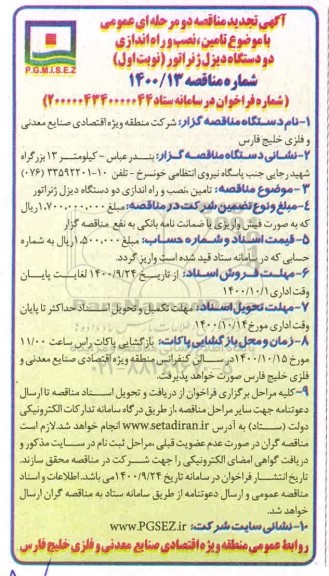 آگهی تجدید مناقصه دو مرحله ای عمومی
با موضوع تامین، نصب و راه اندازی
دو دستگاه دیزل ژنراتور (نوبت اول)
P.G.M.I.S.E.Z
شماره مناقصه ۱۴۰۰/۱۳
(شماره فراخوان در سامانه ستاد ۲۰۰۰۰۰۴۳۴۰۰۰۰۰۴۴)
۱-نام دستگاه مناقصه گزار: شرکت منطقه ویژه اقتصادی صنایع معدنی
و فلزی خلیج فارس
۲-نشانی دستگاه مناقصه گزار: بندرعباس - کیلومتر ۱۳ بزرگراه
شهید رجایی جنب پاسگاه نیروی انتظامی خونسرخ - تلفن ۱۰-۳۳۵۹۲۲۰۱ (۰۷۶)
۳- موضوع مناقصه: تامین، نصب و راه اندازی دو دستگاه دیزل ژنراتور
۴-مبلغ و نوع تضمین شرکت در مناقصه: مبلغ ۱,۷۰۰,۰۰۰,۰۰۰ ریال
که به صورت فیش واریزی یا ضمانت نامه بانکی به نفع مناقصه گزار
۵- قیمت اسناد و شماره حساب: مبلغ ۱,۵۰۰,۰۰۰ ریال به شماره
حسابی که در سامانه ستاد قید شده است واریز گردد.
۶-مهلت فروش اسناد: از تاریخ ۱۴۰۰/۹/۲۴ لغایت پایان
وقت اداری ۱۴۰۰/۱۰/۱
۷-مهلت تحویل اسناد: مهلت تکمیل و تحویل اسناد حداکثر تا پایان
وقت اداری مورخ ۱۴۰۰/۱۰/۱۴
۸-زمان و محل بازگشایی پاکات: بازگشایی پاکات راس ساعت ۱۱/۰۰
مورخ ۱۴۰۰/۱۰/۱۵ در سالن کنفرانس منطقه ویژه اقتصادی صنایع معدنی و
فلزی خلیج فارس صورت خواهد پذیرفت.
۹-کلیه مراحل برگزاری فراخوان از دریافت و تحویل اسناد مناقصه تا ارسال
دعوتنامه جهت سایر مراحل مناقصه، از طریق درگاه سامانه تدارکات الکترونیکی
دولت (ستاد) به آدرس www.setadiran.ir انجام خواهد شد. لازم است
مناقصه گران در صورت عدم عضویت قبلی، مراحل ثبت نام در سایت مذکور و
دریافت گواهی امضای الکترونیکی را جهت شرکت در مناقصه محقق سازند.
تاریخ انتشار فراخوان در سامانه تاریخ ۱۴۰۰/۹/۲۴ می باشد. اطلاعات و اسناد
مناقصه عمومی و ارسال دعوتنامه از طریق سامانه ستاد به مناقصه گران ارسال
خواهد شد.
۱۰-نشانی سایت شرکت: www.PGSEZ.ir
روابط عمومی منطقه ویژه اقتصادی صنایع معدنی و فلزی خلیج فارس